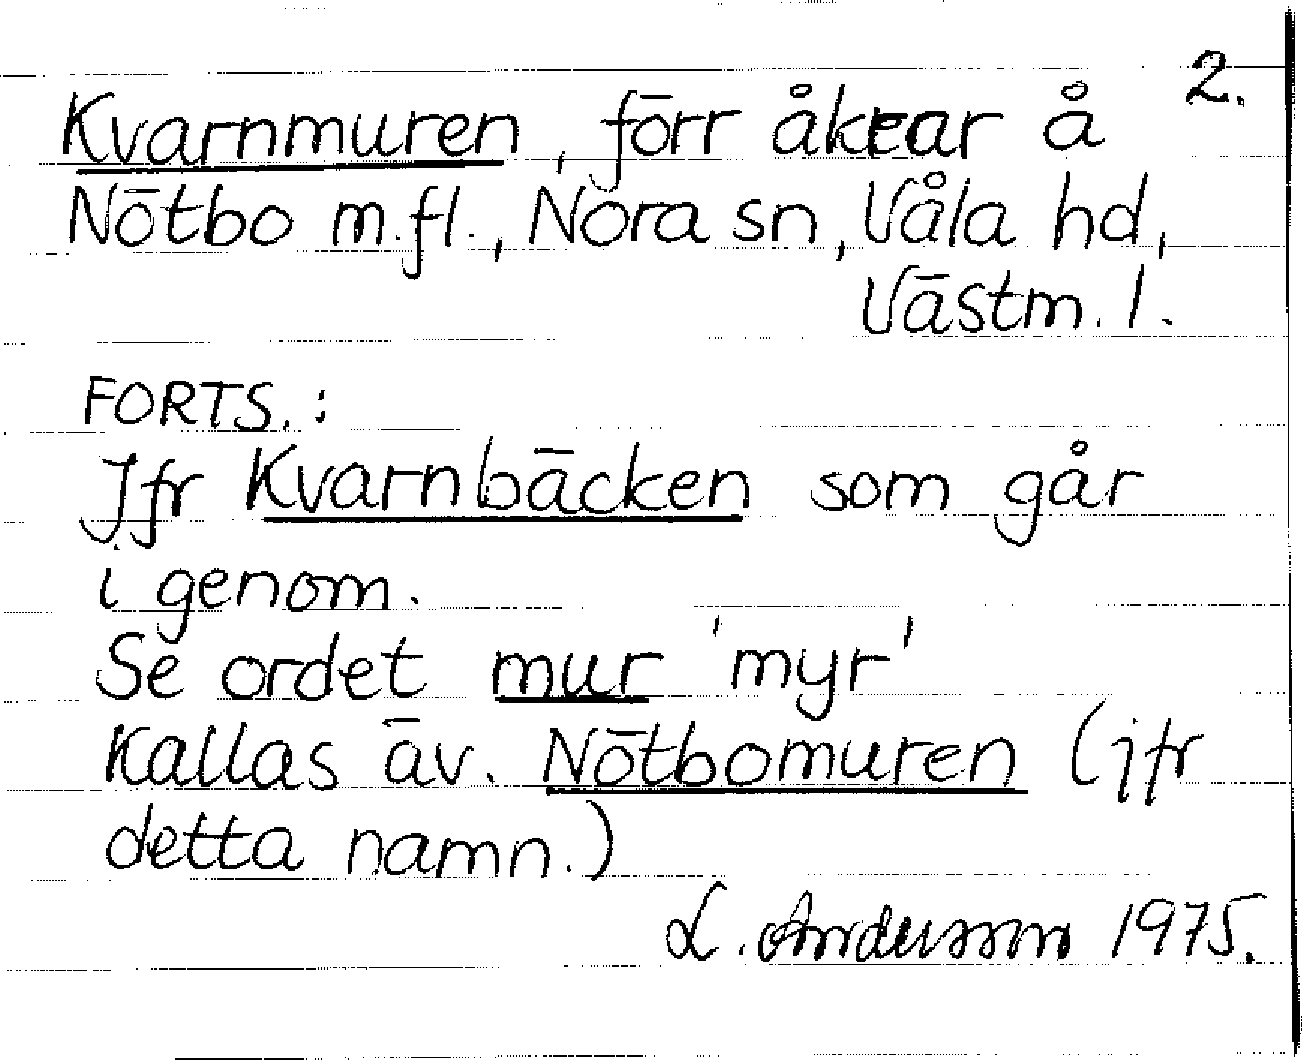 2.
Kvarnmuren, förr åkrar å
Nötbo m.fl., Nora sn, Våla hd,
Västm. l.
FORTS.:
Jfr Kvarnbäcken som går
i genom.
Se ordet mur 'myr'
Kallas äv. Nötbomuren (jfr
detta namn.)
L. Andersson 1975.